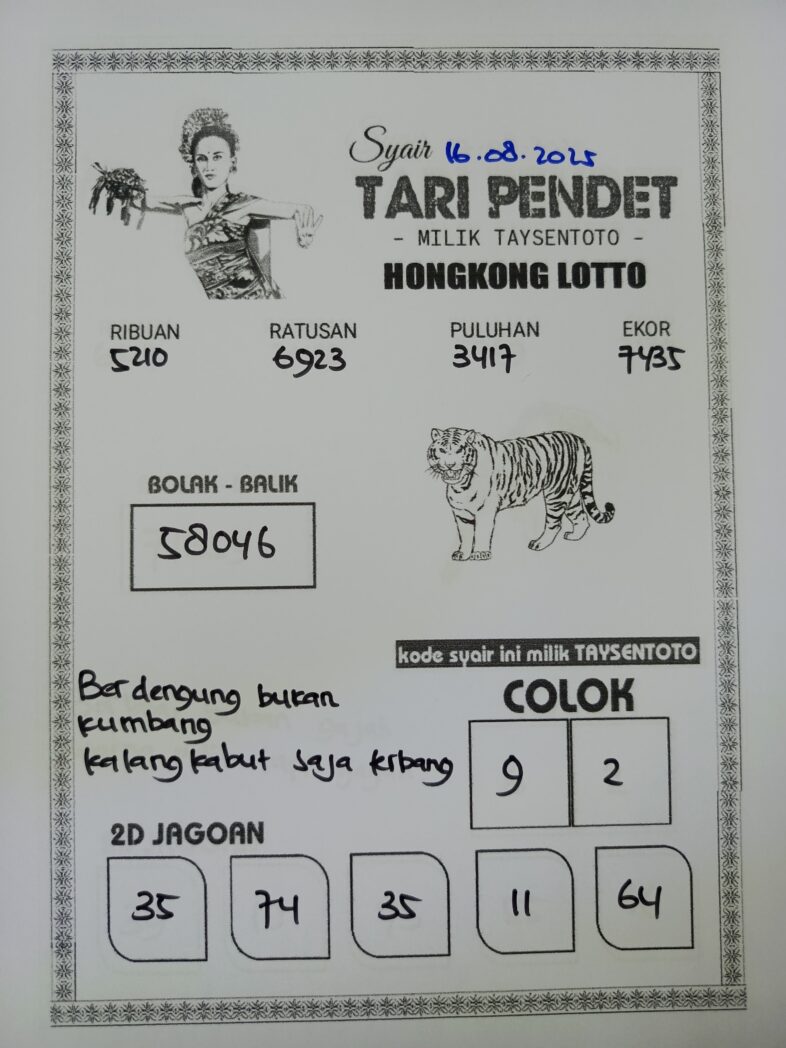 Syair 16.08.2025
TARI PENDET
- MILIK TAYSENTOTO -
HONGKONG LOTTO
RIBUAN RATUSAN PULUHAN EKOR
5210 6923 3417 7435
BOLAK - BALIK
58046
kode syair ini milik TAYSENTOTO
Berdengung bukan
kumbang
kalang kabut saja terbang
COLOK
9 2
2D JAGOAN
35 74 35 11 64